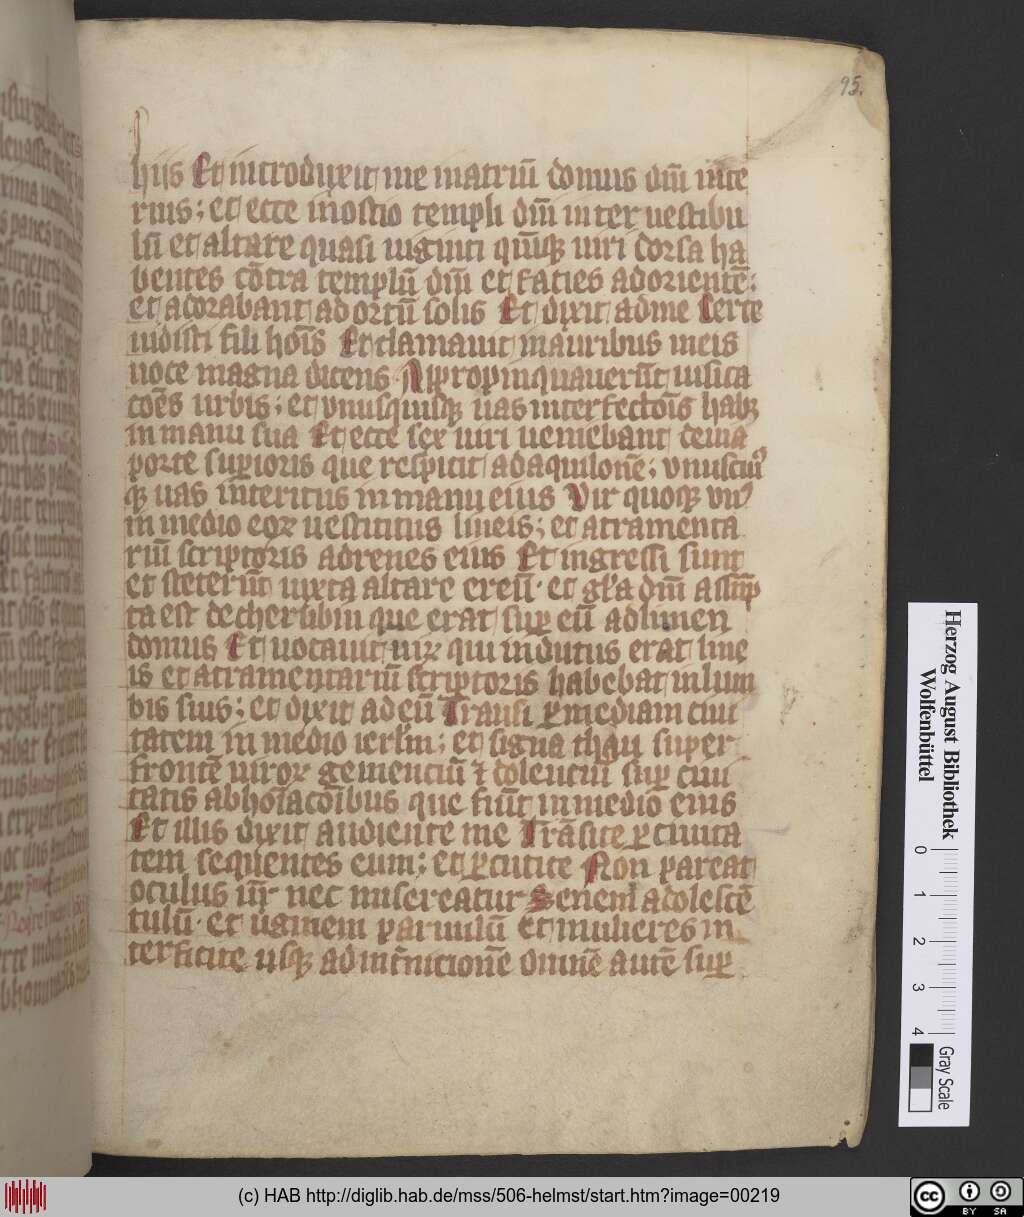 95.
hijs Et introduxit me in atriū domus dñi inte
rius; et ecce in ostio templi dñi inter uestibu
lū et altare quasi uiginti quīqꝫ uiri dorsa ha
bentes cōtra templū dñi et facies ad orientē:
et adorabant ad ortū solis Et dixit ad me Certe
uidisti fili hoīs Et clamauit in auribus meis
uoce magna dicens Appropinquauerūt uisita
coēs urbis; et vnusquisqꝫ uas interfectoīs habꝫ
in manu sua Et ecce sex uiri ueniebant de uia
porte supioris que respicit ad aquilonē; vniuscuiꝰ
qꝫ uas interitus in manu eius Vir quoqꝫ vnꝰ
in medio eoꝝ uestitus lineis; et atramenta
riū scriptoris ad renes eius Et ingressi sunt
et steterūt iuxta altare ereū· et gl̄a dñi assūp
ta est de cherubbin que erat sup eū ad limen
domus Et uocauit uiꝝ qui indutus erat line
is et atramentariū scriptoris habebat in lum
bis suis; et dixit ad eū Transi ꝑ mediam ciui
tatem in medio ierl̄m; et signa thau super
frontē uiroꝝ gementiū ⁊ dolentiū sup cun
tatis abhoīacōibus que fiūt in medio eius
Et illis dixit audiente me Trāsite ꝑ ciuita
tem sequentes eum; et ꝑcutite Non parcat
oculus uꝛ̄ nec misereatur Senem adolescē
tulū· et uginem paruulū et mulieres in
terficite usqꝫ ad int̄nicionē Omnē autē sup
Herzog August Bibliothek
Wolfenbüttel
0 1 2 3 4
Gray Scale
(c) HAB http://diglib.hab.de/mss/506-helmst/start.htm?image=00219
cc BY SA